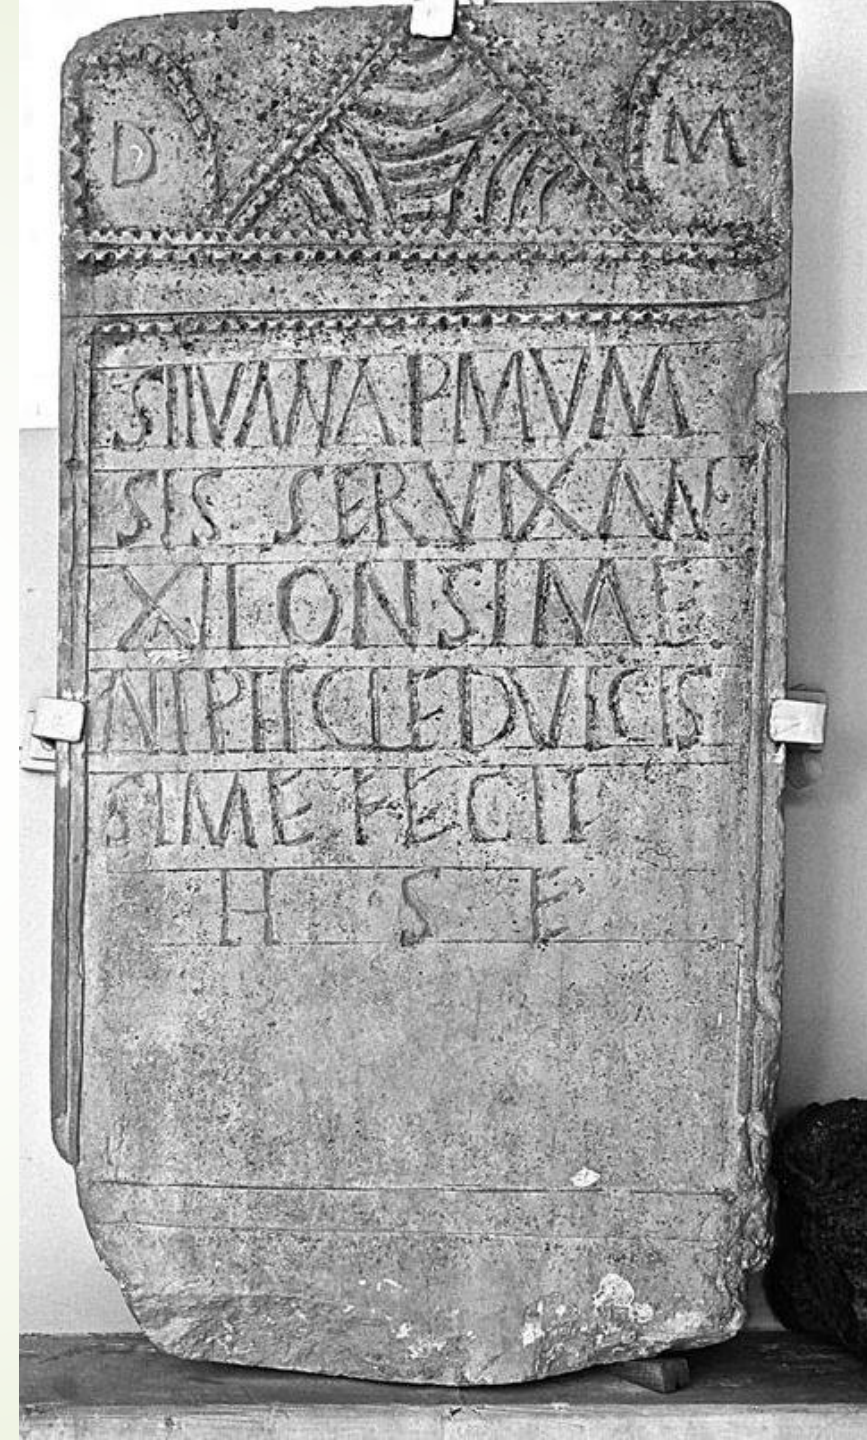 D M
SILVANAPMVM
SIS SERVIXAN
XILONSIME
NIPHICLEDVLCIS
SIME FECIT
H S E